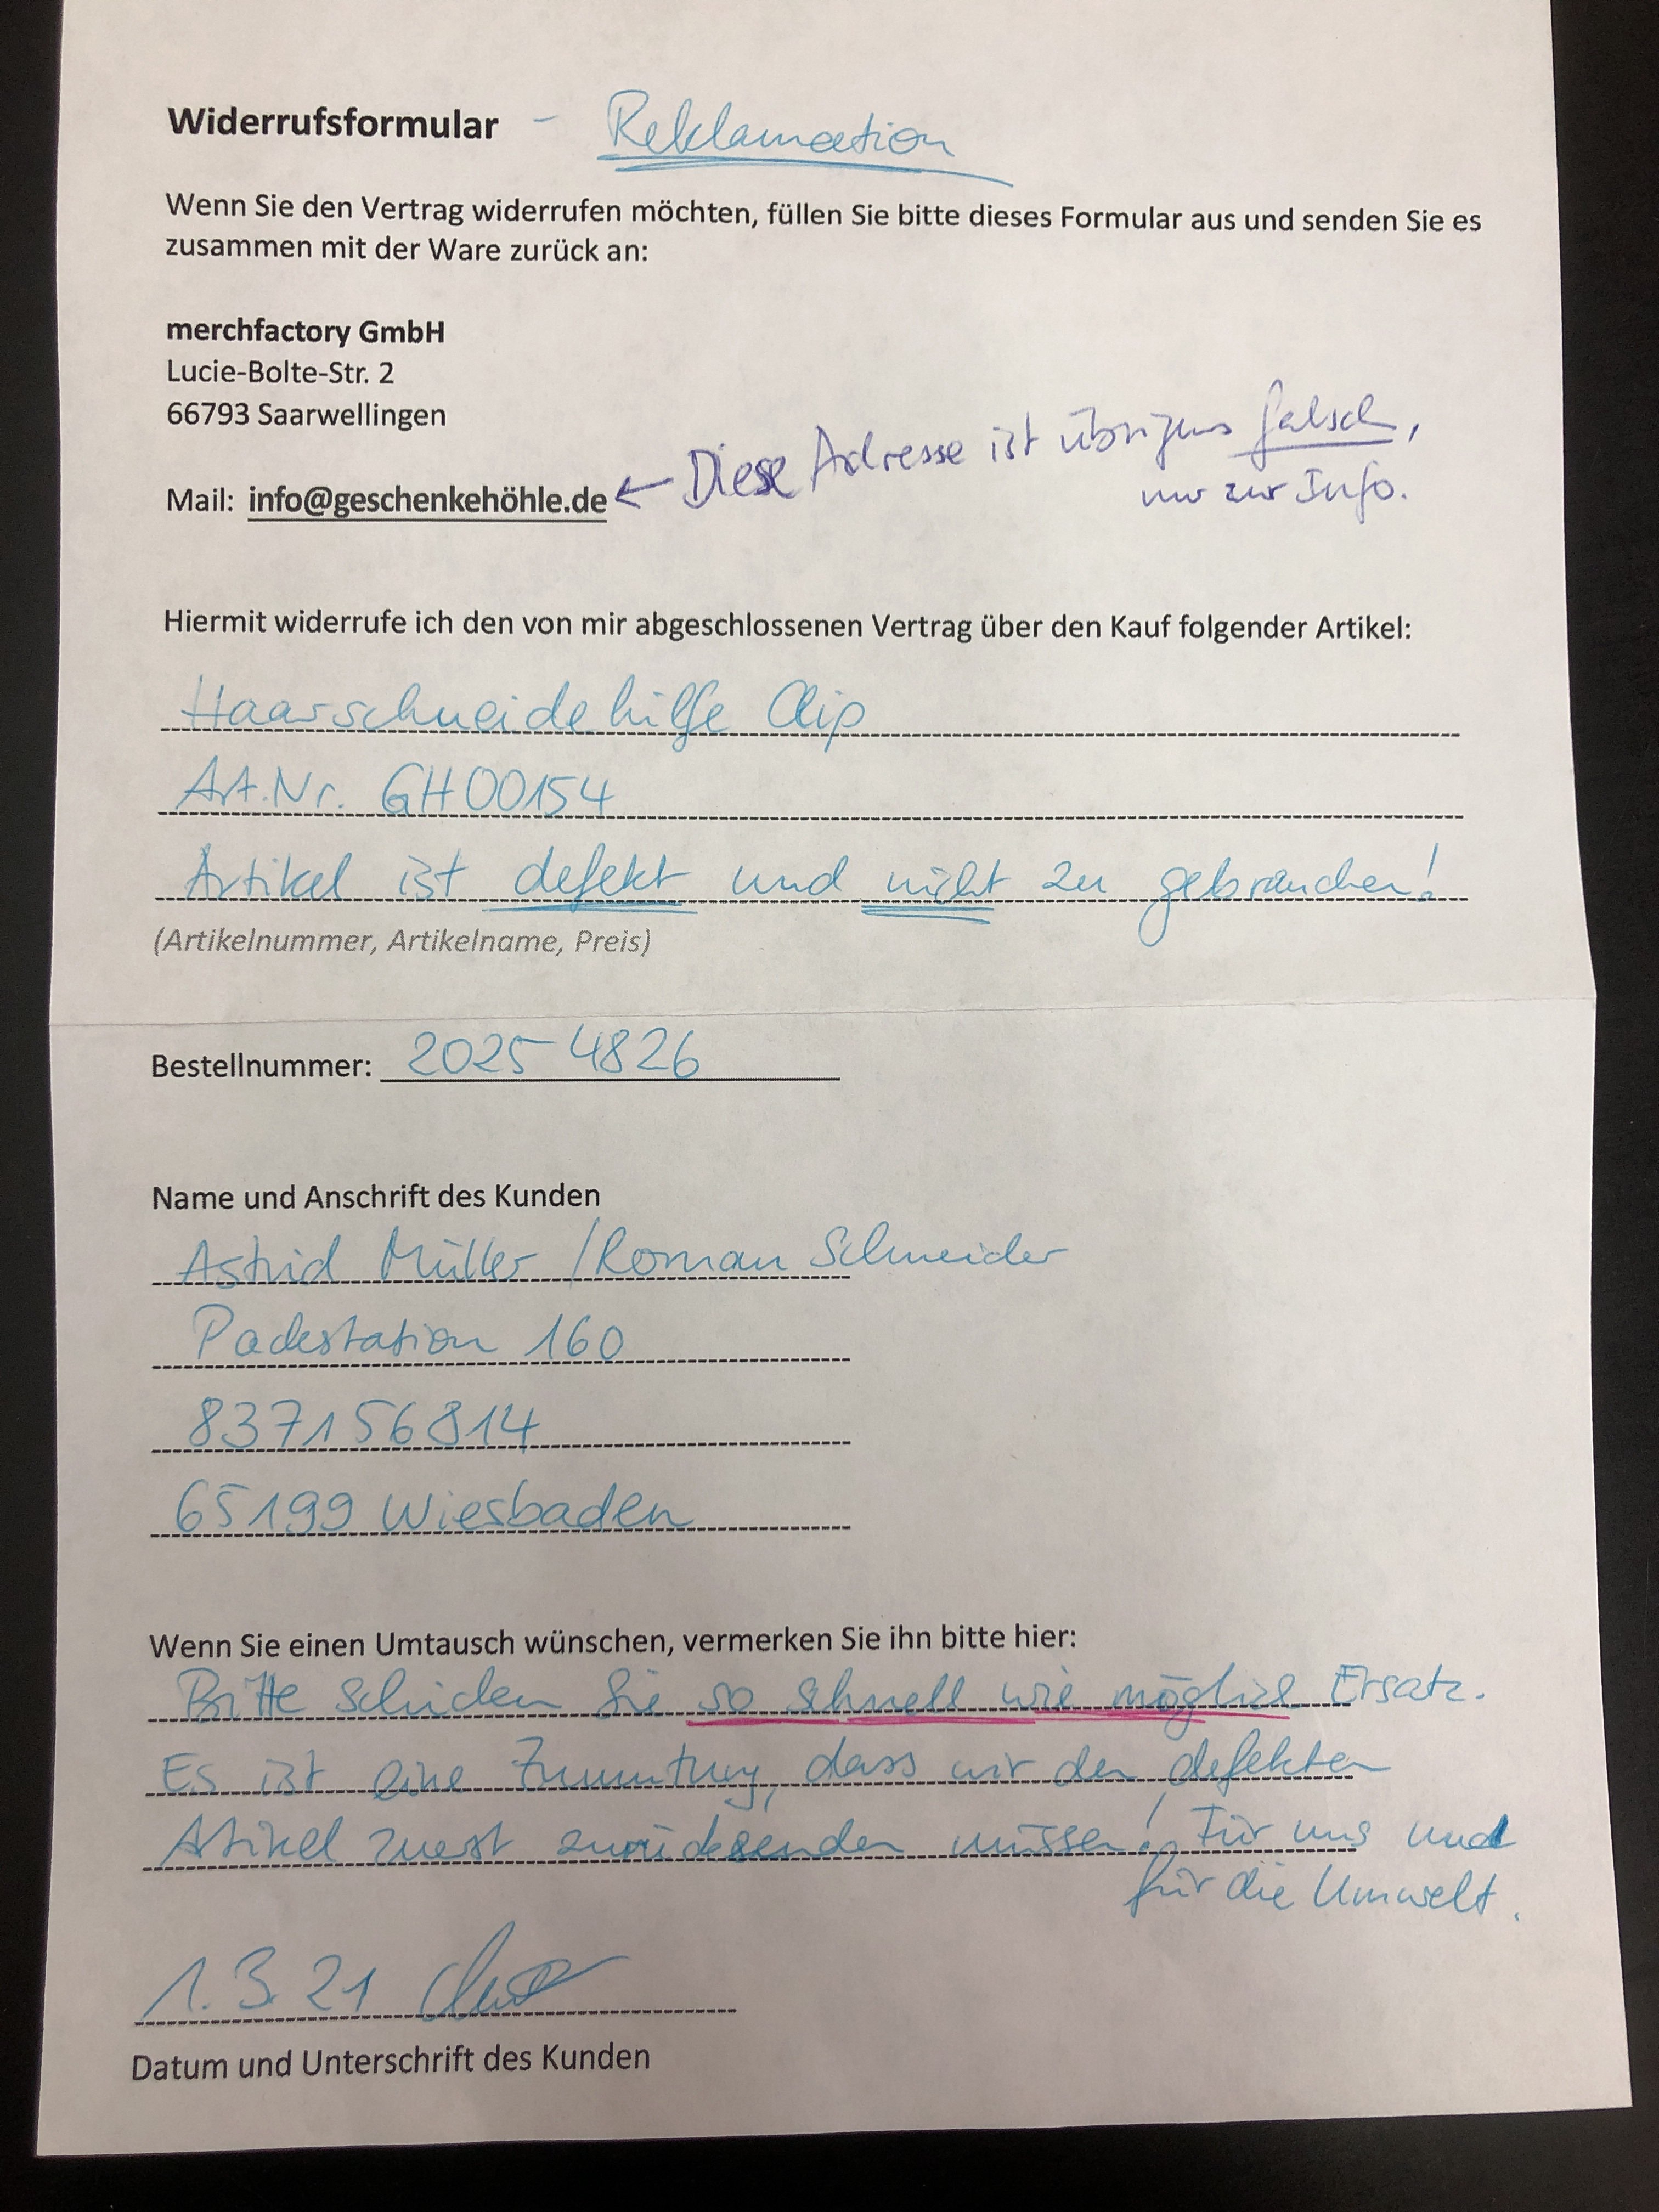 Widerrufsformular - Reklamation
Wenn Sie den Vertrag widerrufen möchten, füllen Sie bitte dieses Formular aus und senden Sie es
zusammen mit der Ware zurück an:
merchfactory GmbH
Lucie-Bolte-Str. 2
66793 Saarwellingen
Mail: info@geschenkehöhle.de ← Diese Adresse ist übrigens falsch,
nur zur Info.
Hiermit widerrufe ich den von mir abgeschlossenen Vertrag über den Kauf folgender Artikel:
Haarschneidehilfe Clip
Art.Nr. GH00154
Artikel ist defekt und nicht zu gebrauchen!
(Artikelnummer, Artikelname, Preis)
Bestellnummer: 2025 4826
Name und Anschrift des Kunden
Astrid Müller / Roman Schneider
Packstation 160
837156814
65199 Wiesbaden
Wenn Sie einen Umtausch wünschen, vermerken Sie ihn bitte hier:
Bitte schicken Sie so schnell wie möglich Ersatz.
Es ist eine Zumutung, dass wir den defekten
Artikel zuerst zurücksenden müssen! Für uns und
für die Umwelt.
1.3.21
Datum und Unterschrift des Kunden